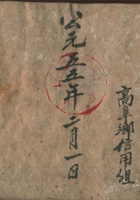 公元五五年二月一日
高阜鄉信用組